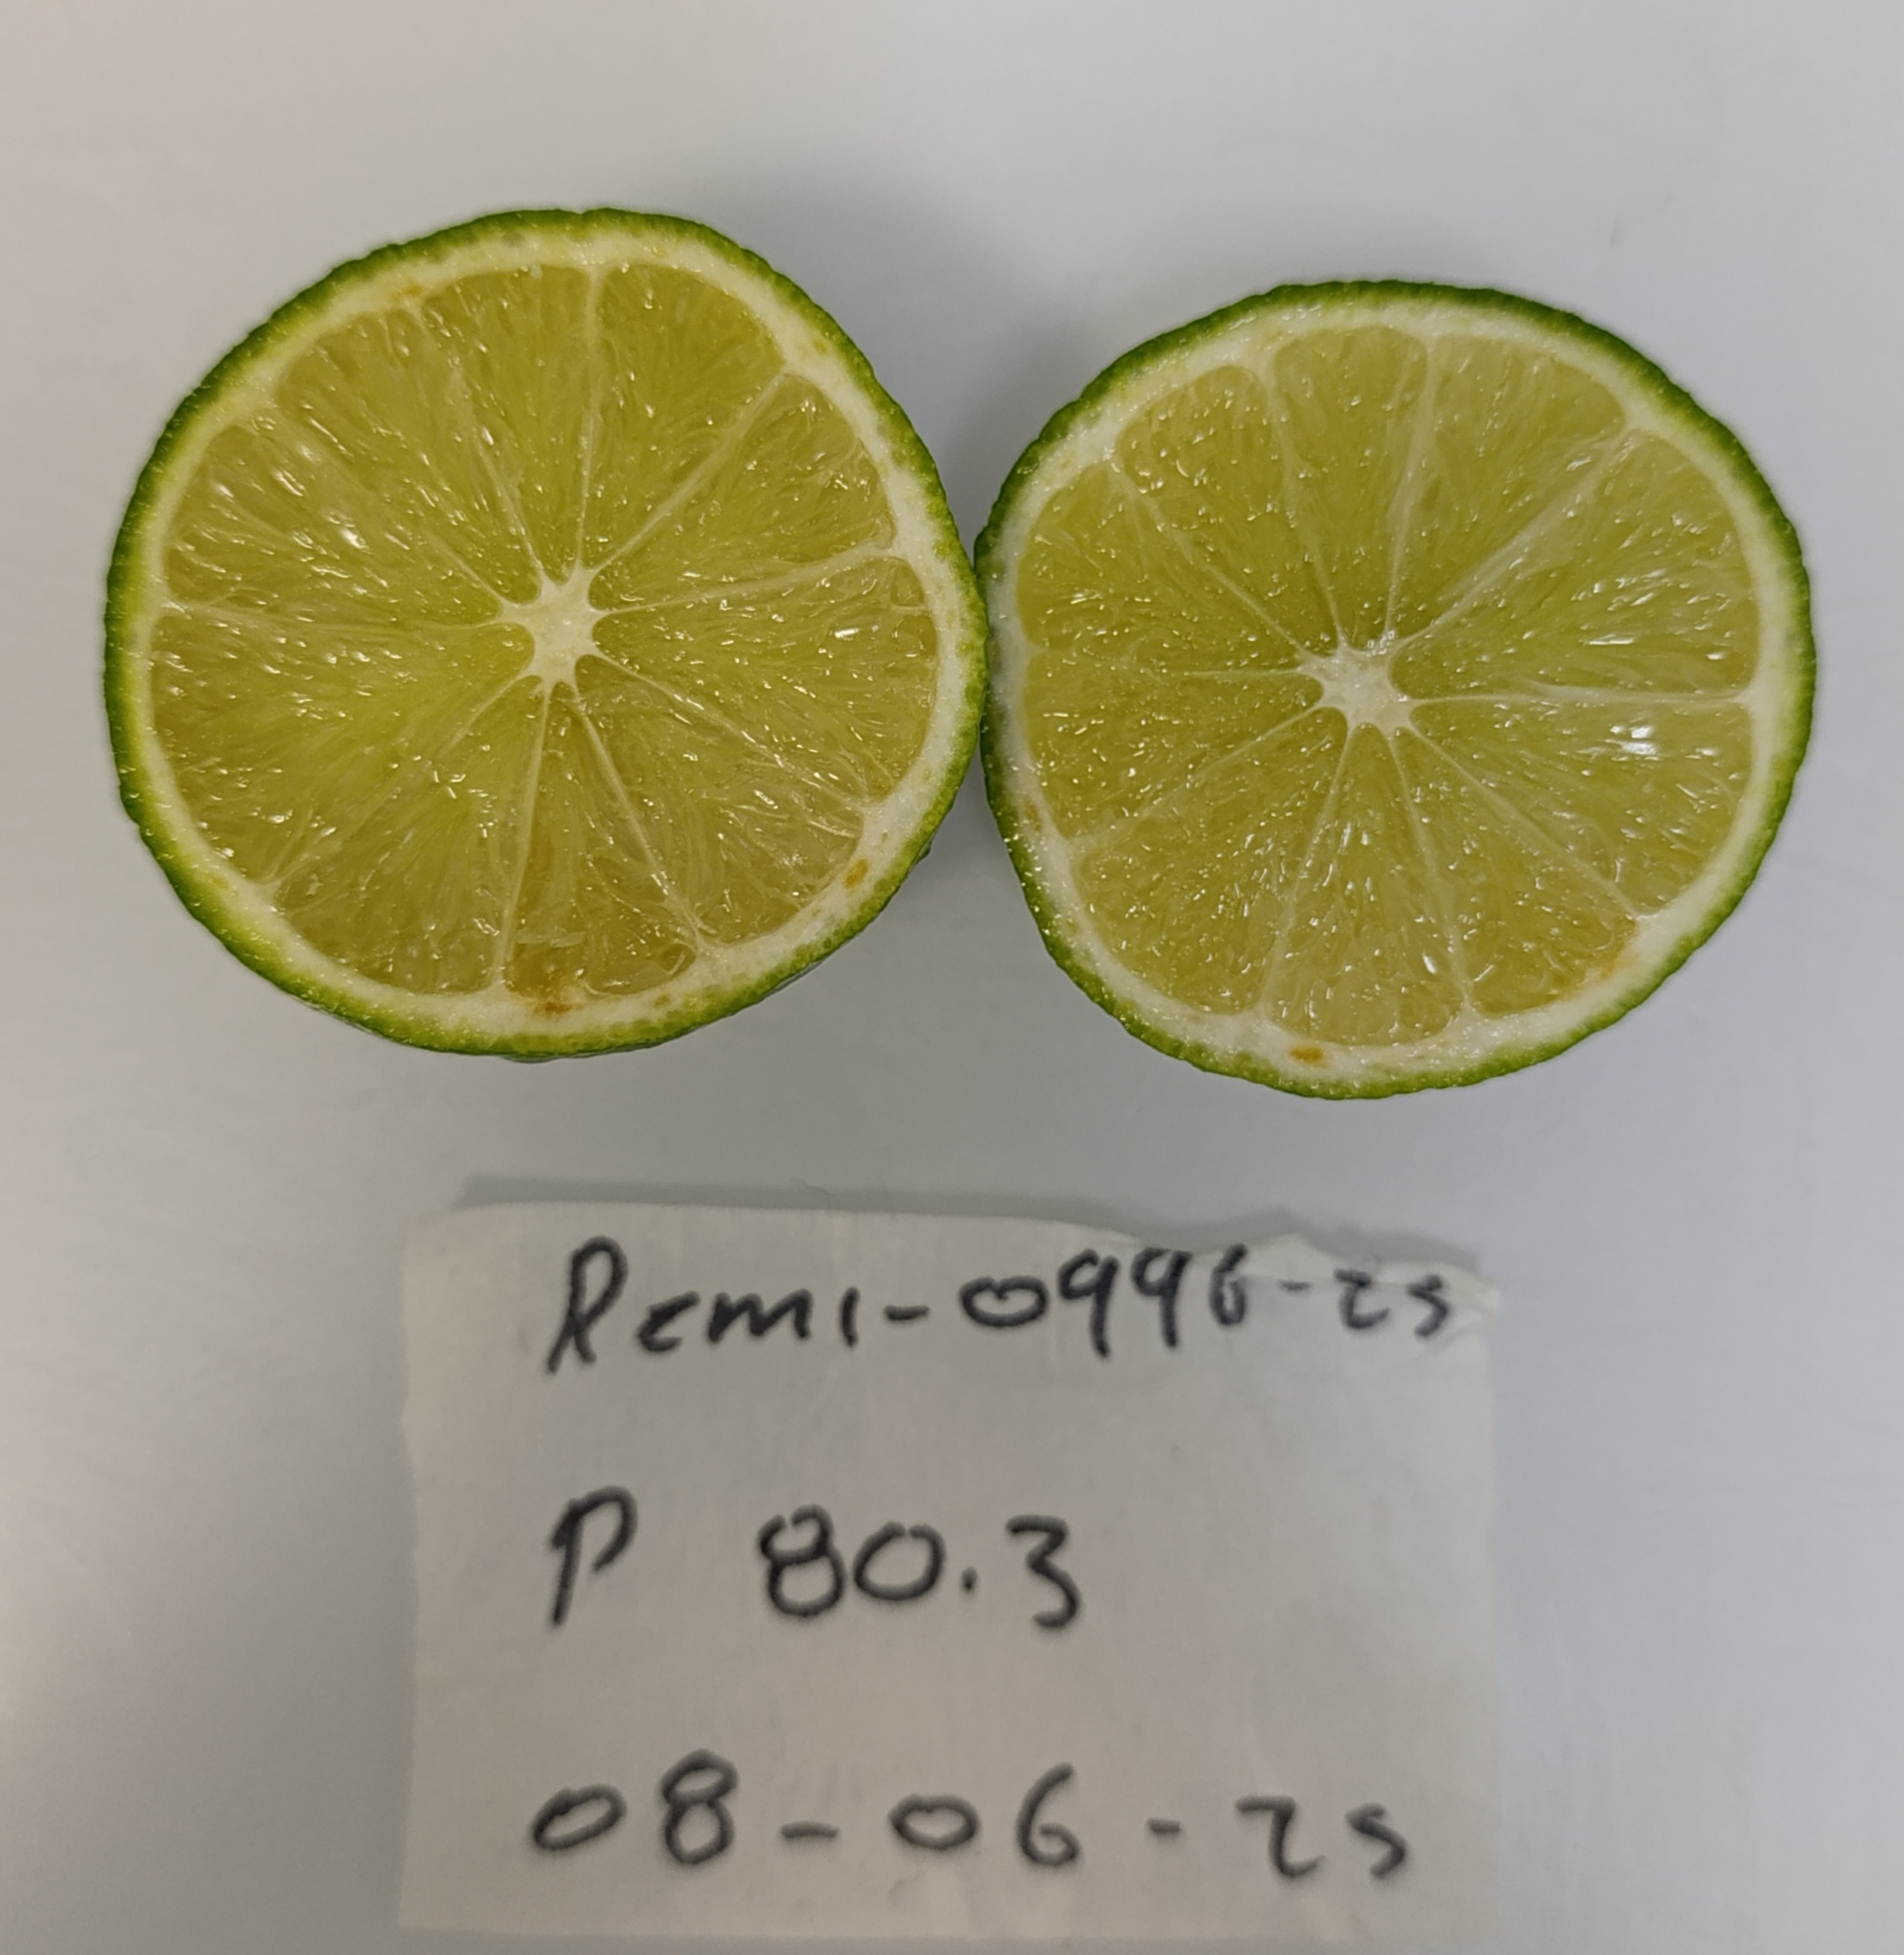 Remi-0996-25
P 80.3
08-06-25